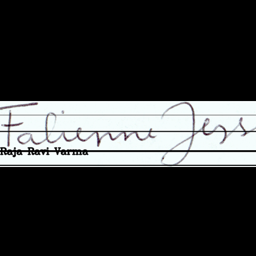 Fabienne Jess
Raja Ravi Varma